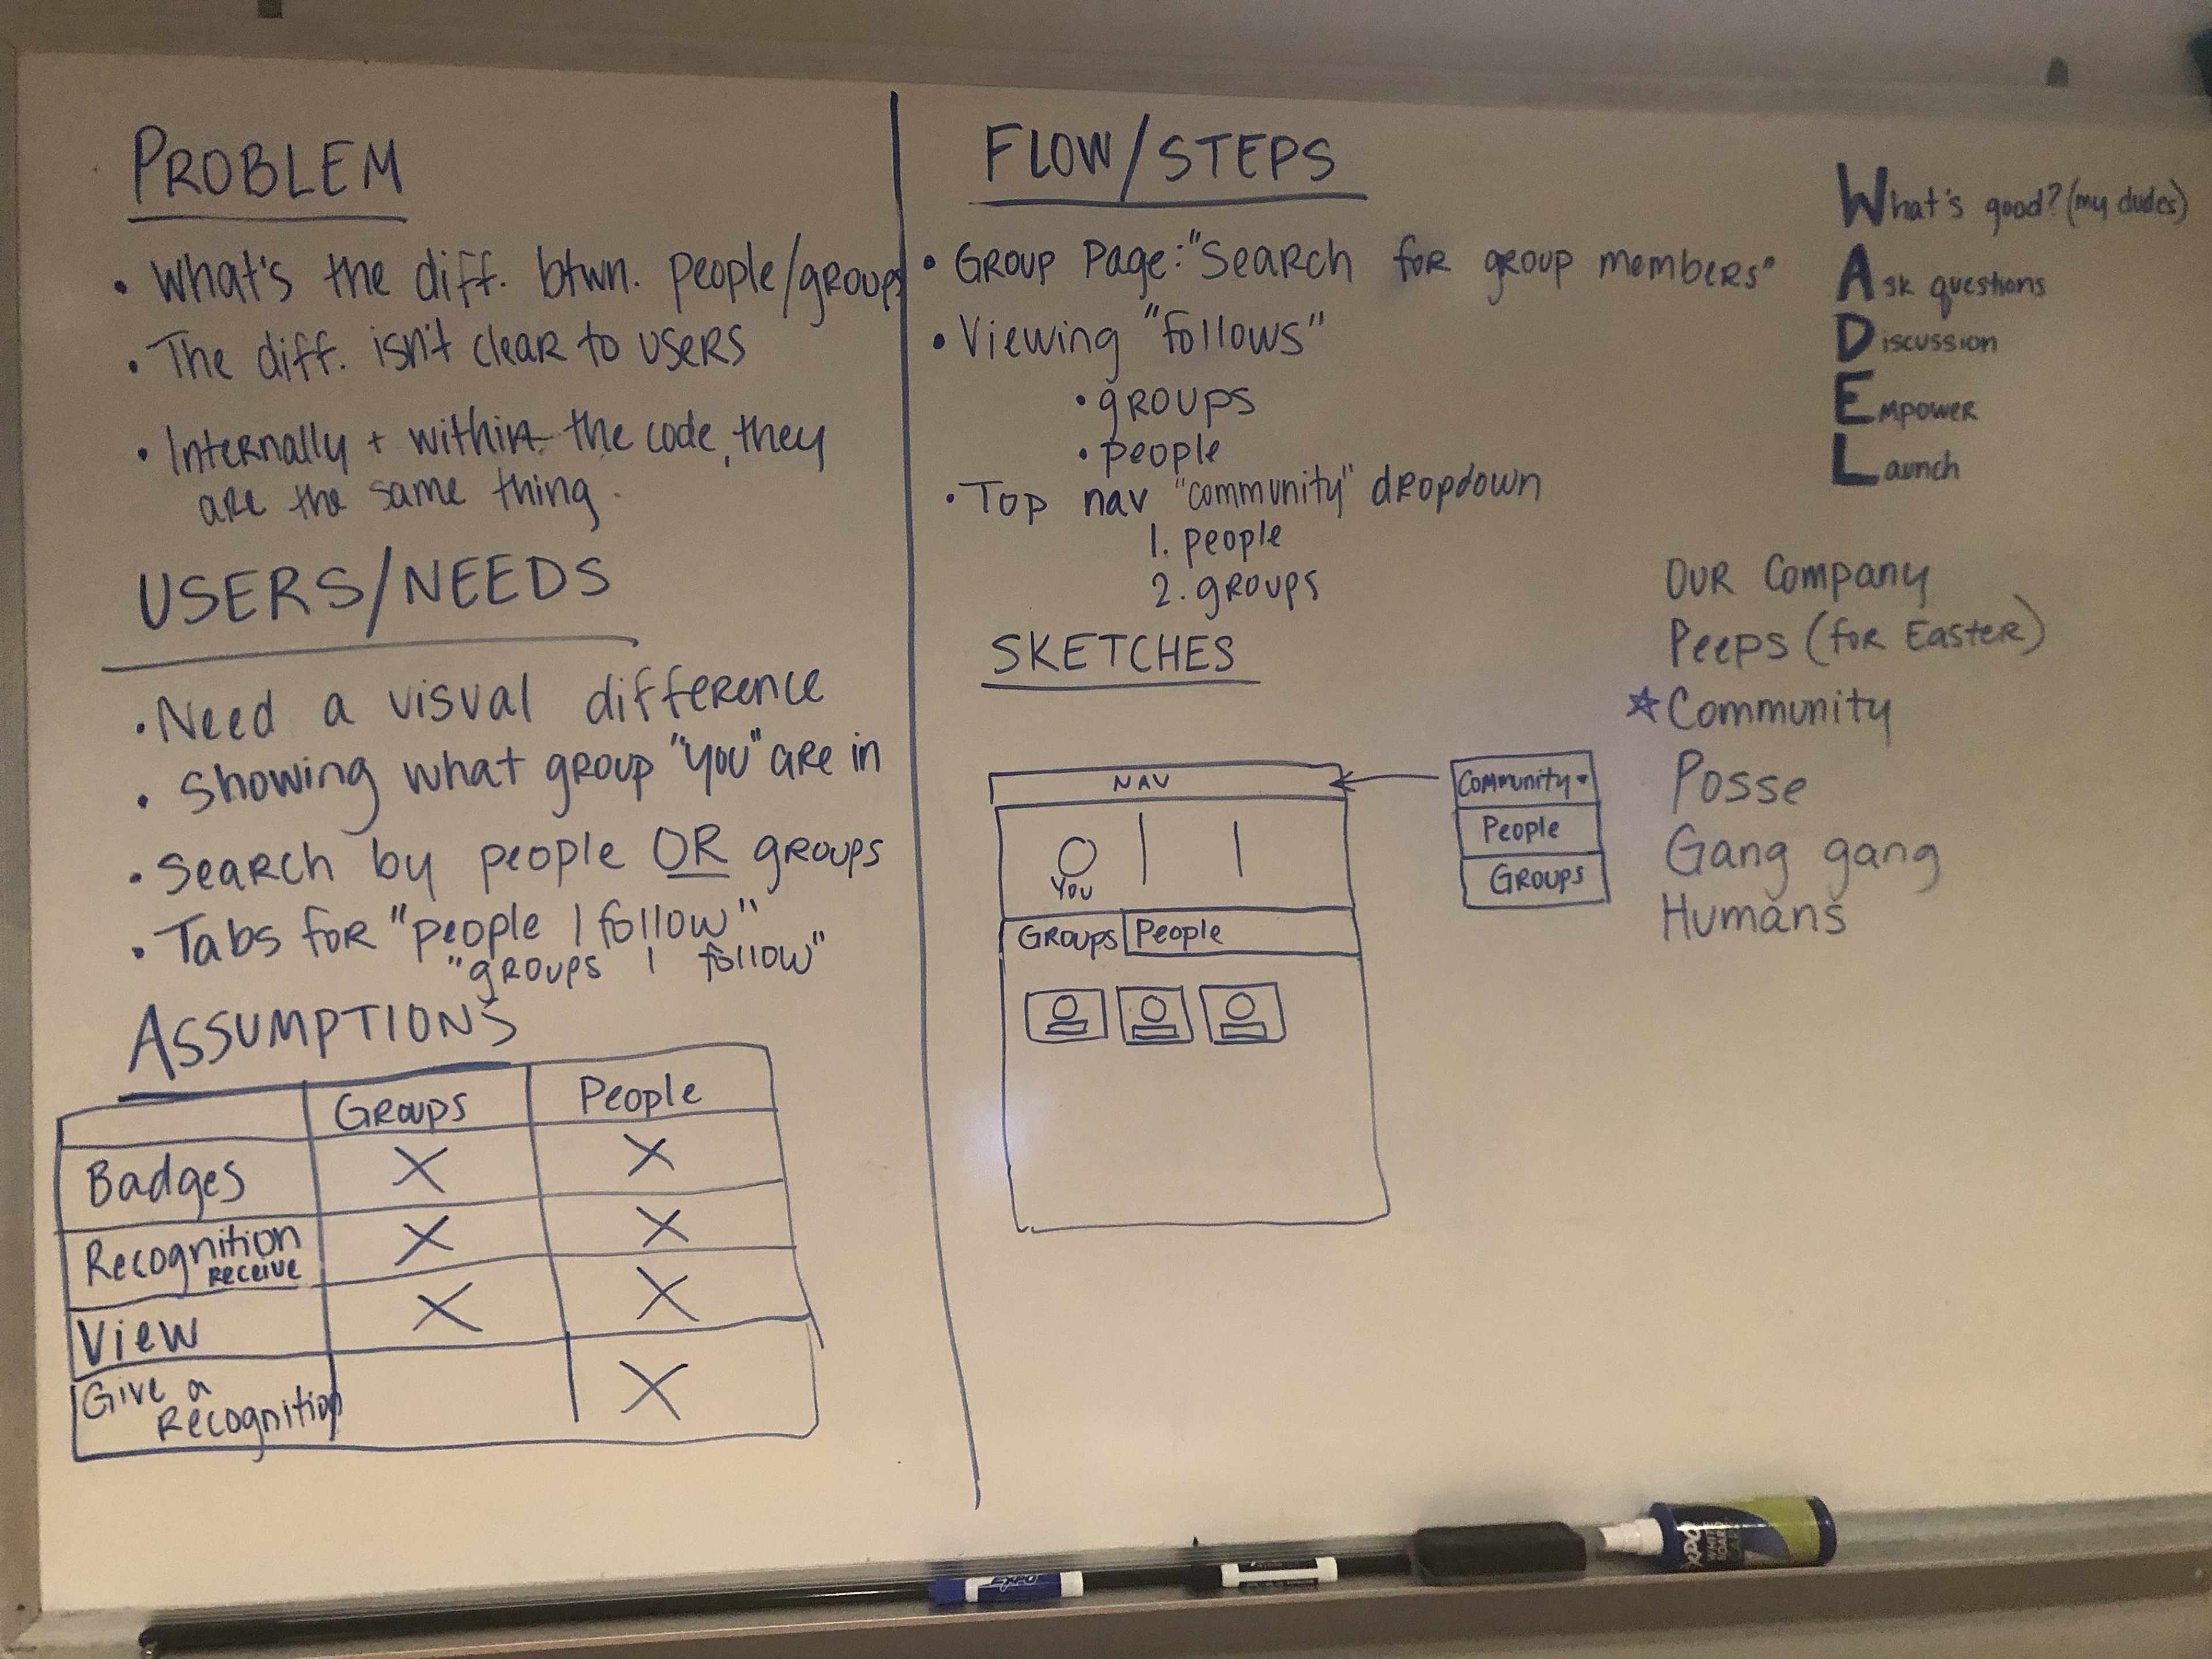 PROBLEM
• What's the diff. btwn. people/groups
• The diff. isn't clear to users
• Internally + within the code, they
are the same thing.
USERS/NEEDS
• Need a visual difference
• Showing what group "you" are in
• Search by people OR groups
• Tabs for "people I follow"
"groups I follow"
ASSUMPTIONS
Groups People
Badges X X
Recognition X X
RECEIVE
View X X
Give a X
Recognition
FLOW/STEPS
• Group Page: "Search for group members"
• Viewing "follows"
• groups
• people
• Top nav "community" dropdown
1. people
2. groups
SKETCHES
NAV
YOU
Groups People
Community
People
Groups
What's good? (my dudes)
Ask questions
Discussion
Empower
Launch
Our Company
Peeps (for Easter)
☆ Community
Posse
Gang gang
Humans
EXPO
EXPO
WHITE
BOARD
CARE